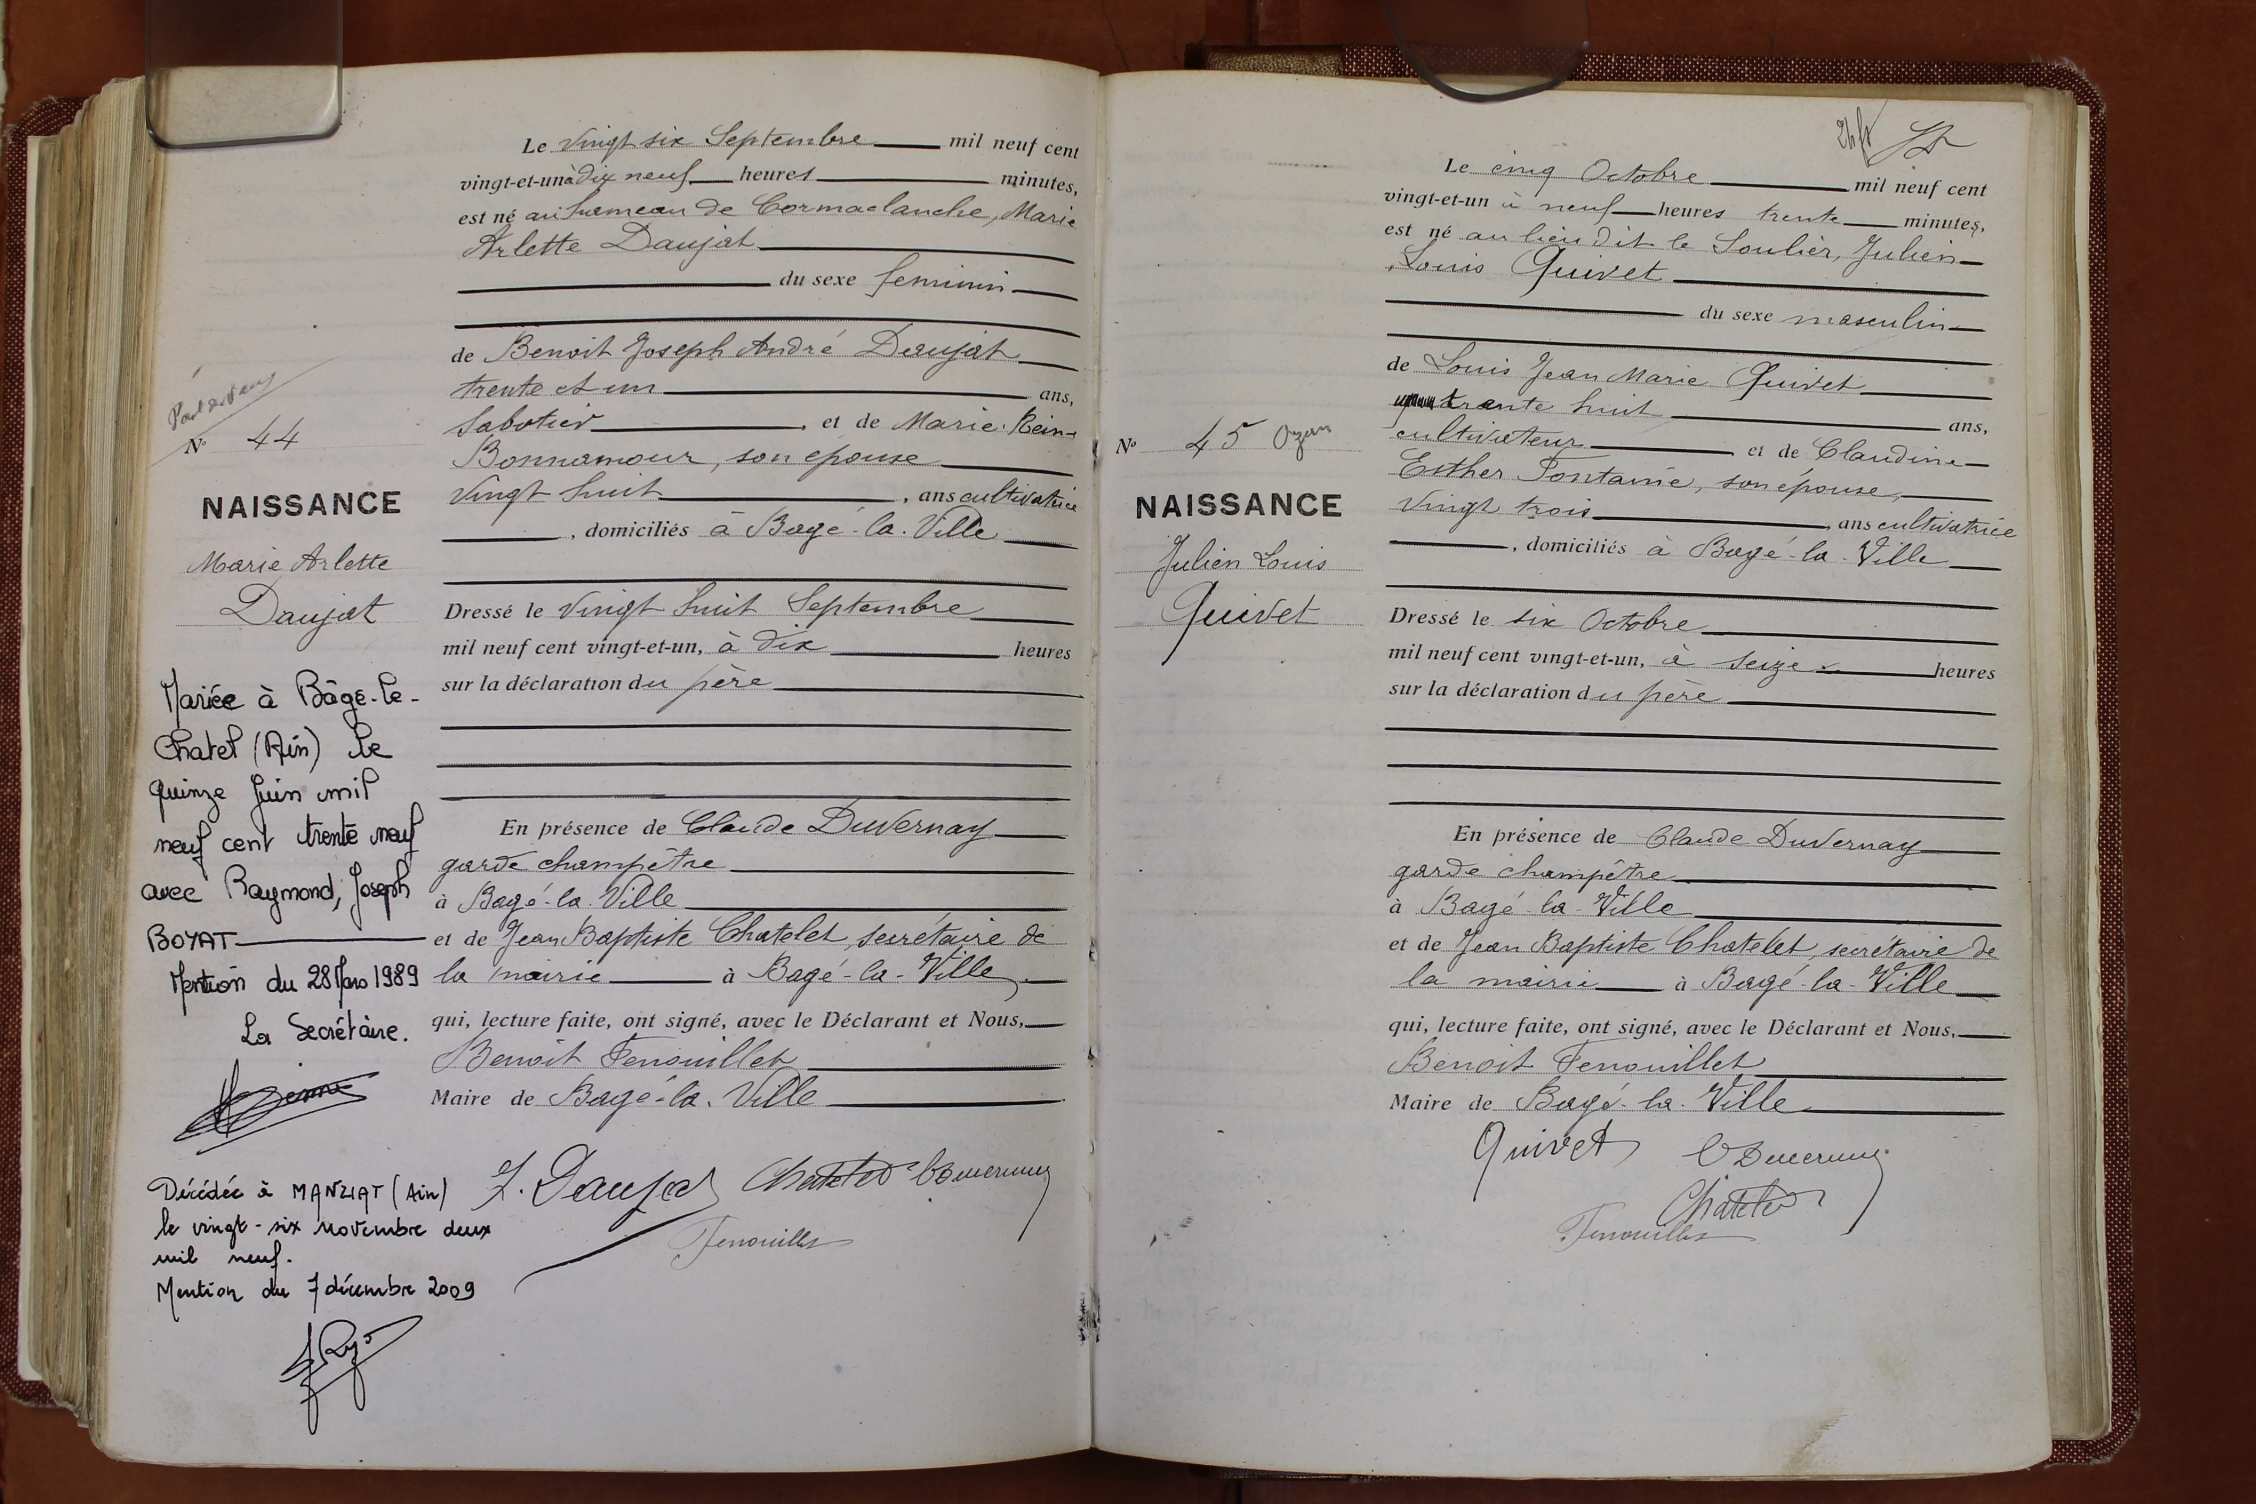 Le vingt six Septembre mil neuf cent
vingt-et-un à dix neuf heures minutes,
est né au hameau de Cormaclanche, Marie
Arlette Daujat
du sexe feminin
de Benoit Joseph André Daujat
trente et un ans,
Sabotier, et de Marie Reine
Bonnamour, son épouse
Vingt huit, ans cultivatrice
, domiciliés à Bagé-la-Ville
Dressé le Vingt huit Septembre
mil neuf cent vingt-et-un, à dix heures
sur la déclaration du père
En présence de Claude Duvernay
garde champêtre
à Bagé-la-Ville
et de Jean Baptiste Chatelet, secrétaire de
la mairie à Bagé-la-Ville
qui, lecture faite, ont signé, avec le Déclarant et Nous,
Benoit Fenouillet
Maire de Bagé-la-Ville
J. Daujat Chatelet C Duvernay
Fenouillet
N° 44
NAISSANCE
Marie Arlette
Daujat
Mariée à Bâgé-le-
Chatel (Ain) le
quinze Juin mil
neuf cent trente neuf
avec Raymond, Joseph
BOYAT
Mention du 28 Mars 1989
La Secrétaire.
Décédée à MANZIAT (Ain)
le vingt-six novembre deux
mil neuf.
Mention du 7 décembre 2009
Le cinq Octobre mil neuf cent
vingt-et-un à neuf heures trente minutes,
est né au lieu dit le Soulier, Julien
Louis Quivet
du sexe masculin
de Louis Jean Marie Quivet
trente huit ans,
cultivateur et de Claudine
Esther Fontaine, son épouse,
Vingt trois, ans cultivatrice
, domiciliés à Bagé-la-Ville
Dressé le six Octobre
mil neuf cent vingt-et-un, à seize heures
sur la déclaration du père
En présence de Claude Duvernay
garde champêtre
à Bagé-la-Ville
et de Jean Baptiste Chatelet, secrétaire de
la mairie à Bagé-la-Ville
qui, lecture faite, ont signé, avec le Déclarant et Nous,
Benoit Fenouillet
Maire de Bagé-la-Ville
Quivet C Duvernay
Chatelet
Fenouillet
N° 45 Ozan
NAISSANCE
Julien Louis
Quivet